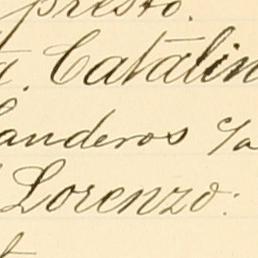 presto.
a. Catalin
Landeros c/a
Lorenzo: